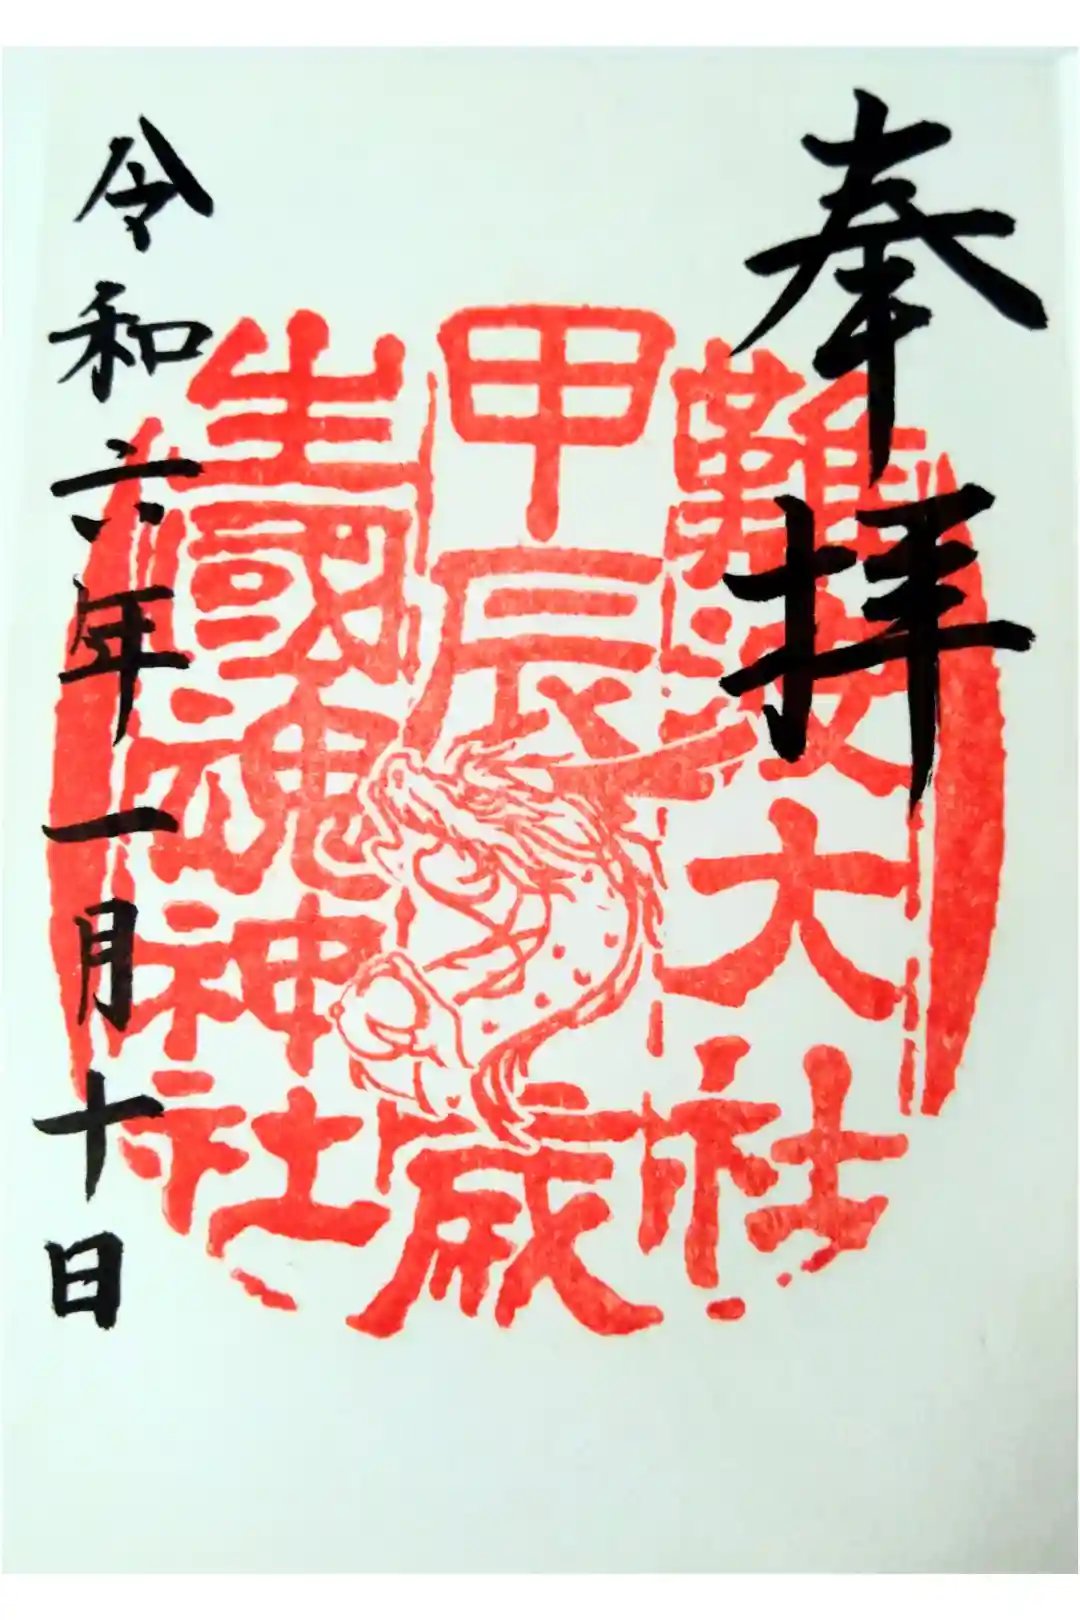 奉拝
難波大社
甲辰歳
生國魂神社
令和六年一月十日